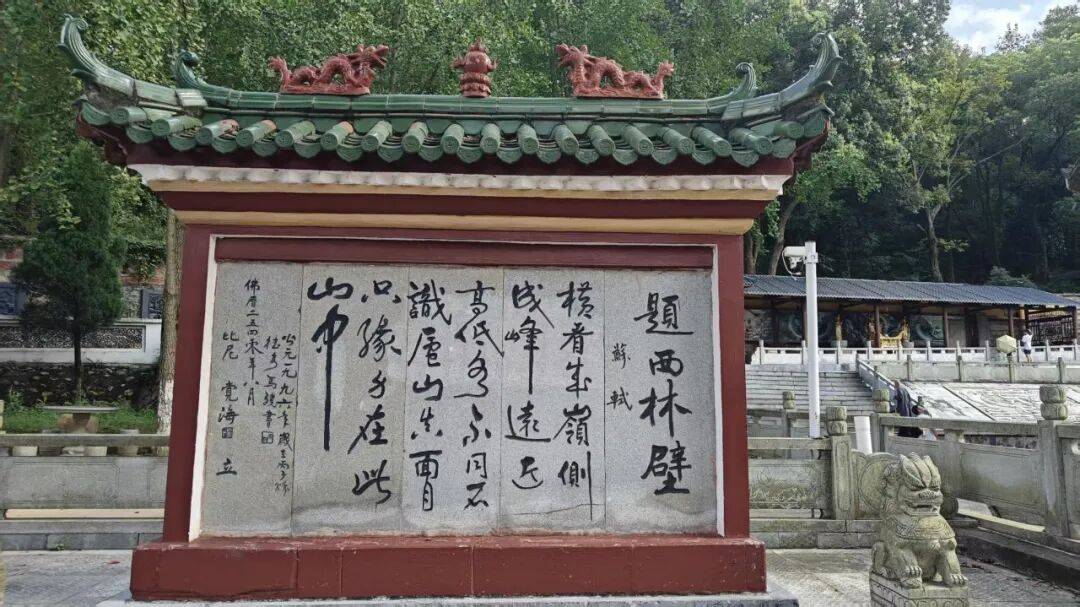 題西林壁
蘇軾
橫看成嶺側
成峰遠近
高低各不同不
識廬山真面目
只緣身在此
山中
公元一九九六年
書
佛曆二五四零年八月
比尼 覺海 立